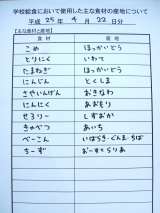 学校給食において使用した主な食材の産地について
平成 25年 4月 22日分
【主な食材と産地】
食材 産地
こめ ほっかいどう
とりにく いわて
たまねぎ ほっかいどう
にんじん とくしま
さやいんげん おきなわ
にんにく あおもり
せろりー しずおか
きゃべつ あいち
べーこん いばらき・ぐんま・ちば
ちーず おーすとらりあ